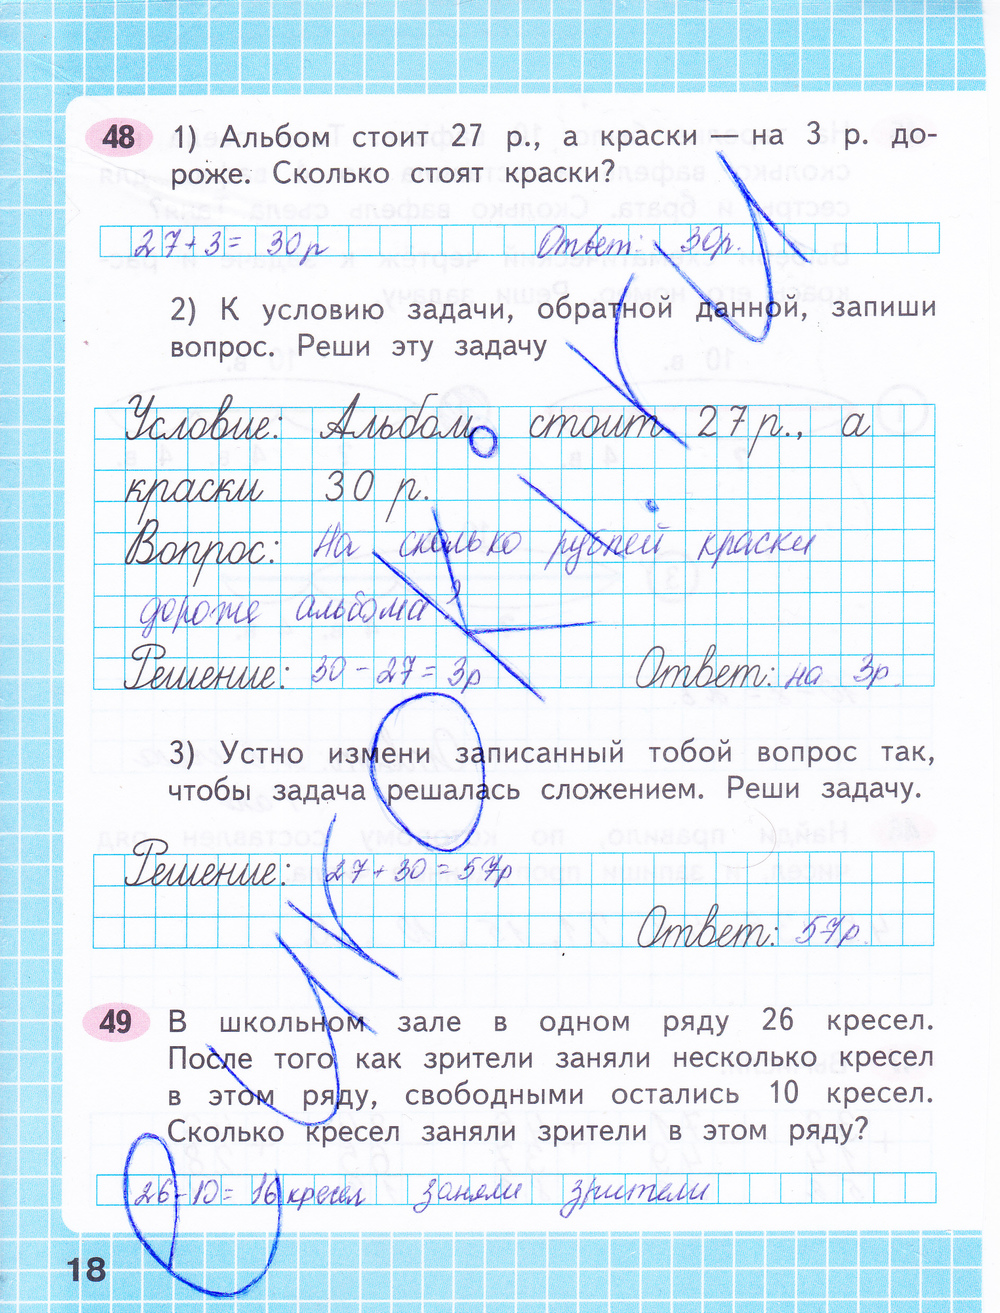 48 1) Альбом стоит 27 р., а краски — на 3 р. до-
роже. Сколько стоят краски?
27+3= 30р Ответ: 30р.
2) К условию задачи, обратной данной, запиши
вопрос. Реши эту задачу
Условие: Альбом стоит 27 р., а
краски 30 р.
Вопрос: На сколько рублей краски
дороже альбома?
Решение: 30-27=3р Ответ: на 3р.
3) Устно измени записанный тобой вопрос так,
чтобы задача решалась сложением. Реши задачу.
Решение: 27+30=57р
Ответ: 57р.
49 В школьном зале в одном ряду 26 кресел.
После того как зрители заняли несколько кресел
в этом ряду, свободными остались 10 кресел.
Сколько кресел заняли зрители в этом ряду?
26-10= 16 кресел заняли зрители
18